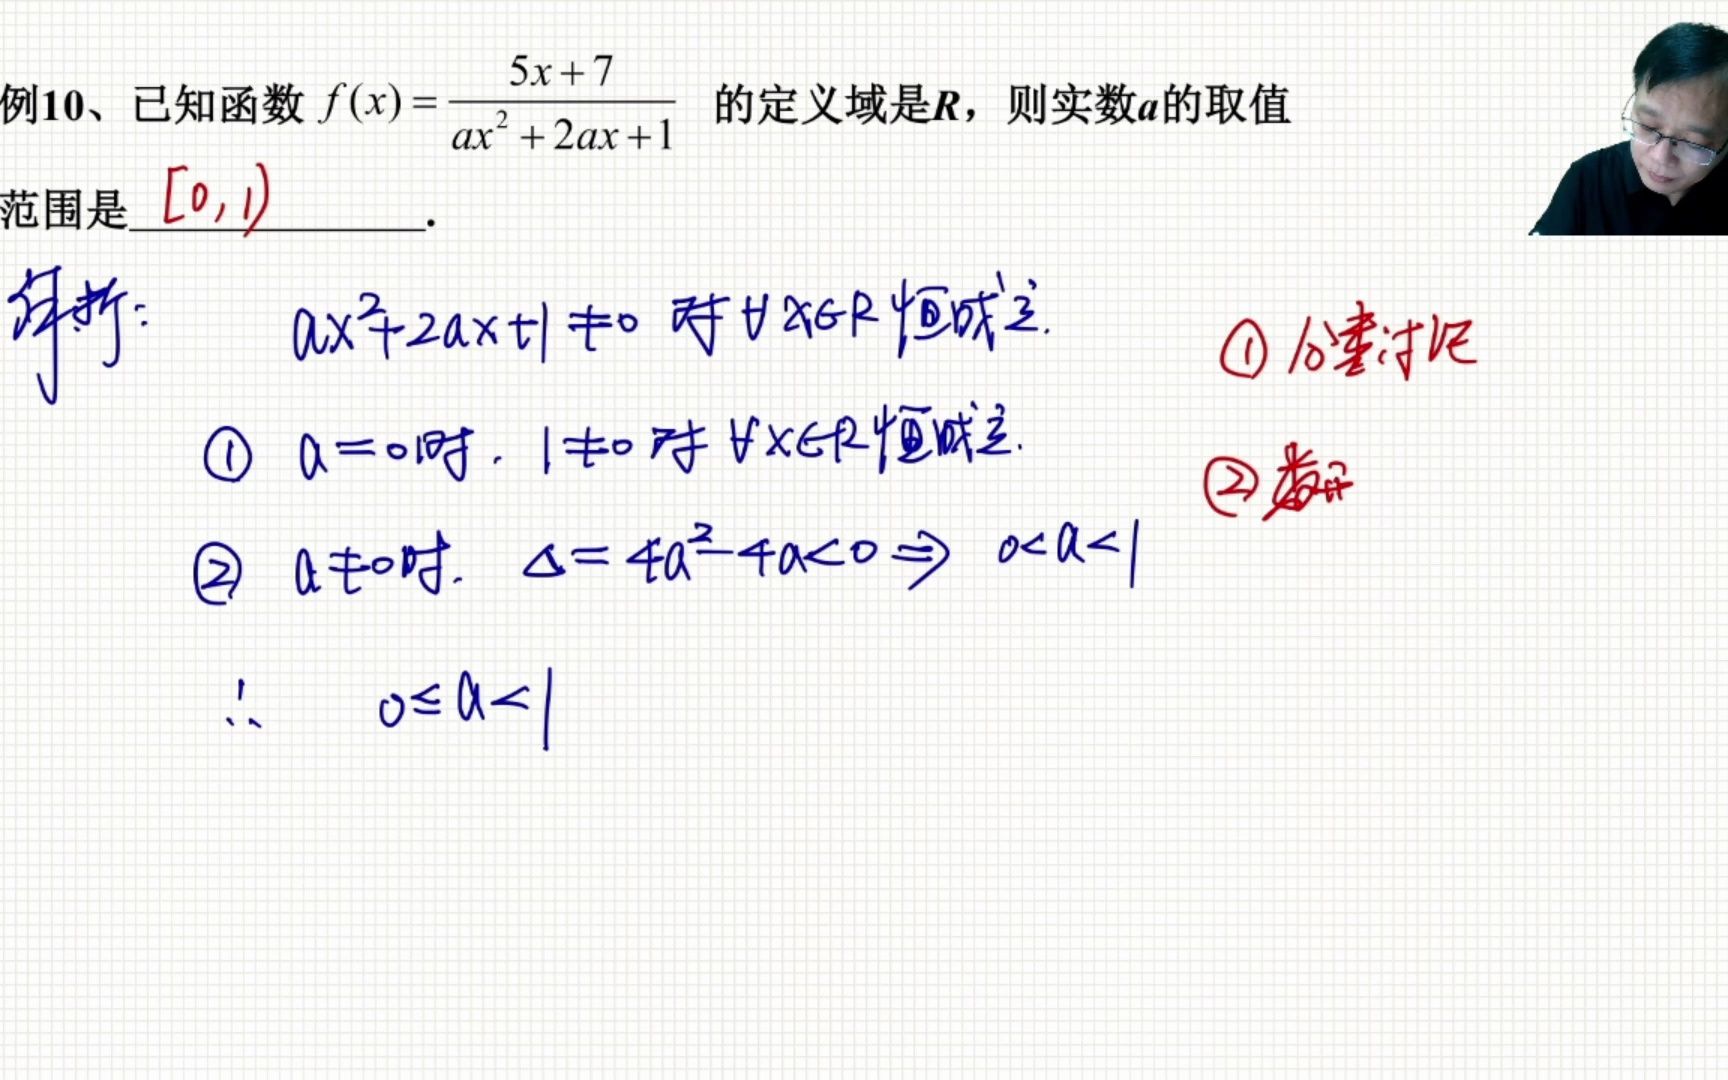 例10、已知函数 f(x) = (5x+7)/(ax²+2ax+1) 的定义域是R，则实数a的取值
范围是 [0,1) .
解析: ax²+2ax+1≠0 对∀x∈R恒成立.
① a=0时. 1≠0 对∀x∈R恒成立.
② a≠0时. Δ=4a²-4a<0 ⇒ 0<a<1
∴ 0≤a<1
① 分类讨论
②